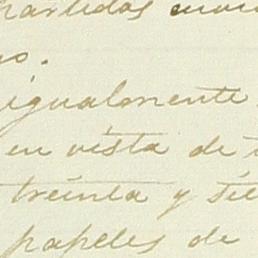 partidos
igualmente
en vista de
treinta y
papeles de